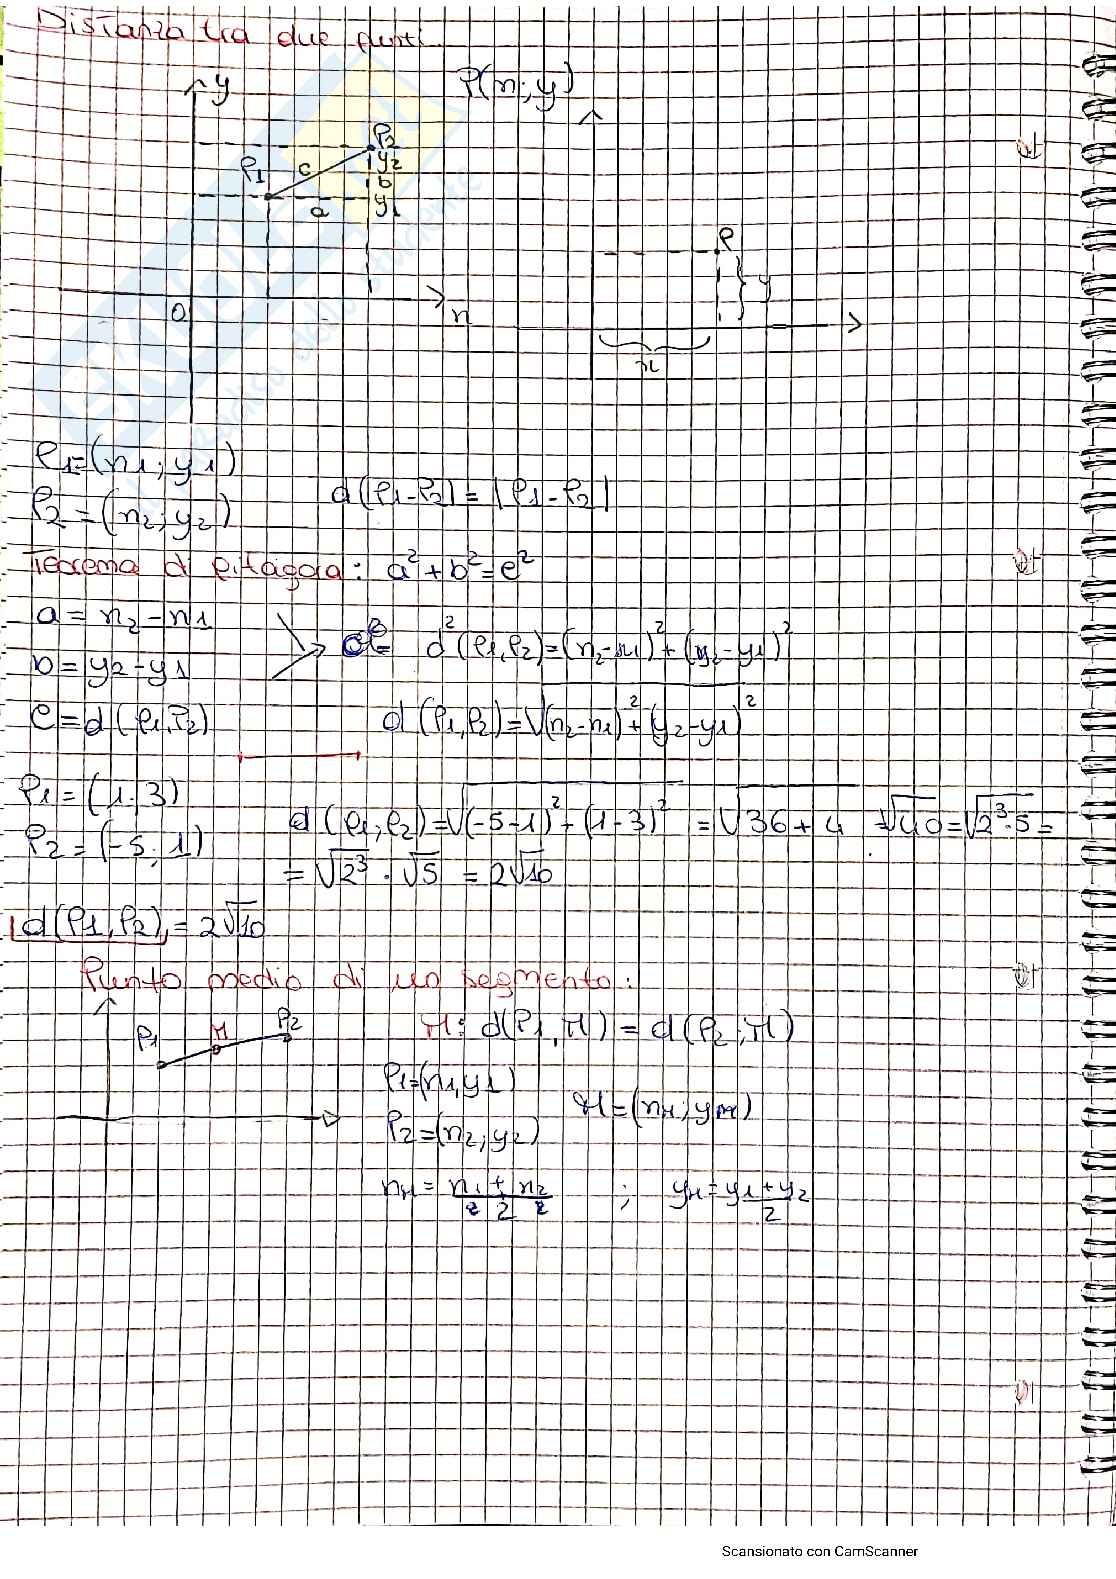 Distanza tra due punti
y
P(x; y)
P2
P1 c y2
b
a y1
P
y
0
x
x
P1=(x1; y1)
P2=(x2; y2)
d(P1-P2)=|P1-P2|
Teorema di Pitagora: a²+b²=c²
a=x2-x1
b=y2-y1
d²(P1,P2)=(x2-x1)²+(y2-y1)²
c=d(P1,P2)
d(P1,P2)=√(x2-x1)²+(y2-y1)²
P1=(1;3)
P2=(-5;1)
d(P1;P2)=√(-5-1)²+(1-3)² =√36+4 =√40=√2³·5=
=√2³·√5 = 2√10
d(P1,P2)=2√10
Punto medio di un segmento:
P1 M P2
M: d(P1,M)=d(P2;M)
P1=(x1,y1)
M=(xM; yM)
P2=(x2;y2)
xM = x1+x2/2 ; yM = y1+y2/2
Scansionato con CamScanner